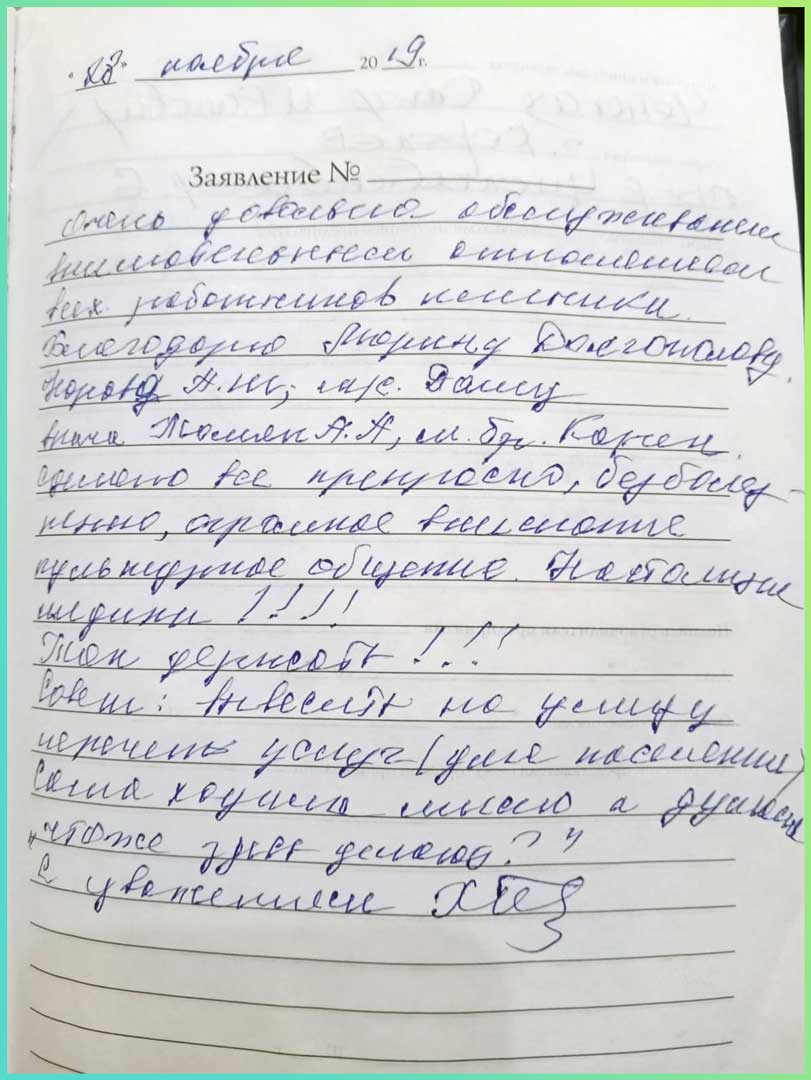 "28" ноября 2019 г.
Заявление №
Очень довольна обслуживанием
внимательным отношением
всех работников клиники.
Благодарю Марину Долгополову,
А.Н., м/с. Дашу
врача Томян А.А, м. бр. Карен.
Сделано все прекрасно, безболез-
ненно, огромное внимание
культурное общение. Настоящие
медики !!!!
Так держать !!!
Совет: вывесить на улицу
перечень услуг (для населения)
Сама ходила мимо и думала
"что же здесь делают?"
С уважением